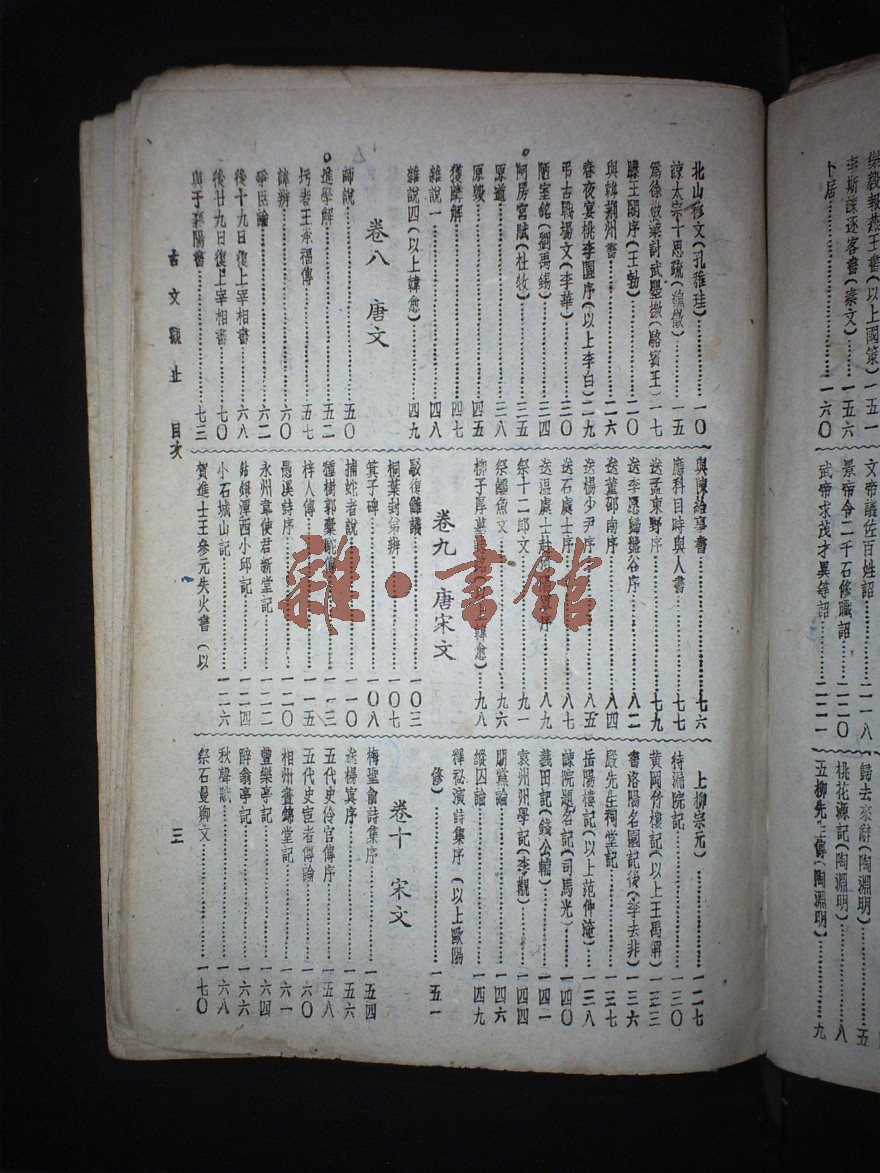 樂毅報燕王書(以上國策)一五一
李斯諫逐客書(秦文)……一五六
卜居……一六〇
武帝求茂才異等詔……二二一
景帝令二千石修職詔……二二〇
文帝議佐百姓詔……二一八
歸去來辭(陶淵明)……五
桃花源記(陶淵明)……八
五柳先生傳(陶淵明)……九
北山移文(孔稚珪)……一〇
諫太宗十思疏(魏徵)……一五
為徐敬業討武曌檄(駱賓王)一七
滕王閣序(王勃)……二〇
與韓荊州書……二六
春夜宴桃李園序(以上李白)二九
弔古戰場文(李華)……三〇
陋室銘(劉禹錫)……三四
阿房宮賦(杜牧)……三五
原道……三八
原毀……四五
獲麟解……四七
雜說一……四八
雜說四(以上韓愈)……四九
卷八 唐文
師說……五〇
進學解……五二
圬者王承福傳……五七
諱辯……六〇
爭臣論……六二
後十九日復上宰相書……六八
後廿九日復上宰相書……七〇
與于襄陽書……七三
與陳給事書……七六
應科目時與人書……七七
送孟東野序……七九
送李愿歸盤谷序……八二
送董邵南序……八四
送楊少尹序……八五
送石處士序……八七
送溫處士赴河陽軍序……八九
祭十二郎文……九一
祭鱷魚文……九六
柳子厚墓誌銘(以上韓愈)……九八
卷九 唐宋文
駁復讎議……一〇三
桐葉封弟辨……一〇七
箕子碑……一〇八
捕蛇者說……一一〇
種樹郭橐駝傳……一一三
梓人傳……一一五
愚溪詩序……一二〇
永州韋使君新堂記……一二二
鈷鉧潭西小邱記……一二四
小石城山記……一二六
賀進士王參元失火書(以
上柳宗元)……一二七
待漏院記……一三〇
黃岡竹樓記(以上王禹偁)一三三
書洛陽名園記後(李去非)一三六
嚴先生祠堂記……一三七
岳陽樓記(以上范仲淹)……一三八
諫院題名記(司馬光)……一四〇
義田記(錢公輔)……一四一
袁州州學記(李覯)……一四四
朋黨論……一四六
縱囚論……一四九
釋祕演詩集序(以上歐陽
修)……一五一
卷十 宋文
梅聖俞詩集序……一五四
送楊寘序……一五六
五代史伶官傳序……一五八
五代史宦者傳論……一六〇
相州晝錦堂記……一六一
豐樂亭記……一六四
醉翁亭記……一六六
秋聲賦……一六八
祭石曼卿文……一七〇
古文觀止 目次
三
雜·書館